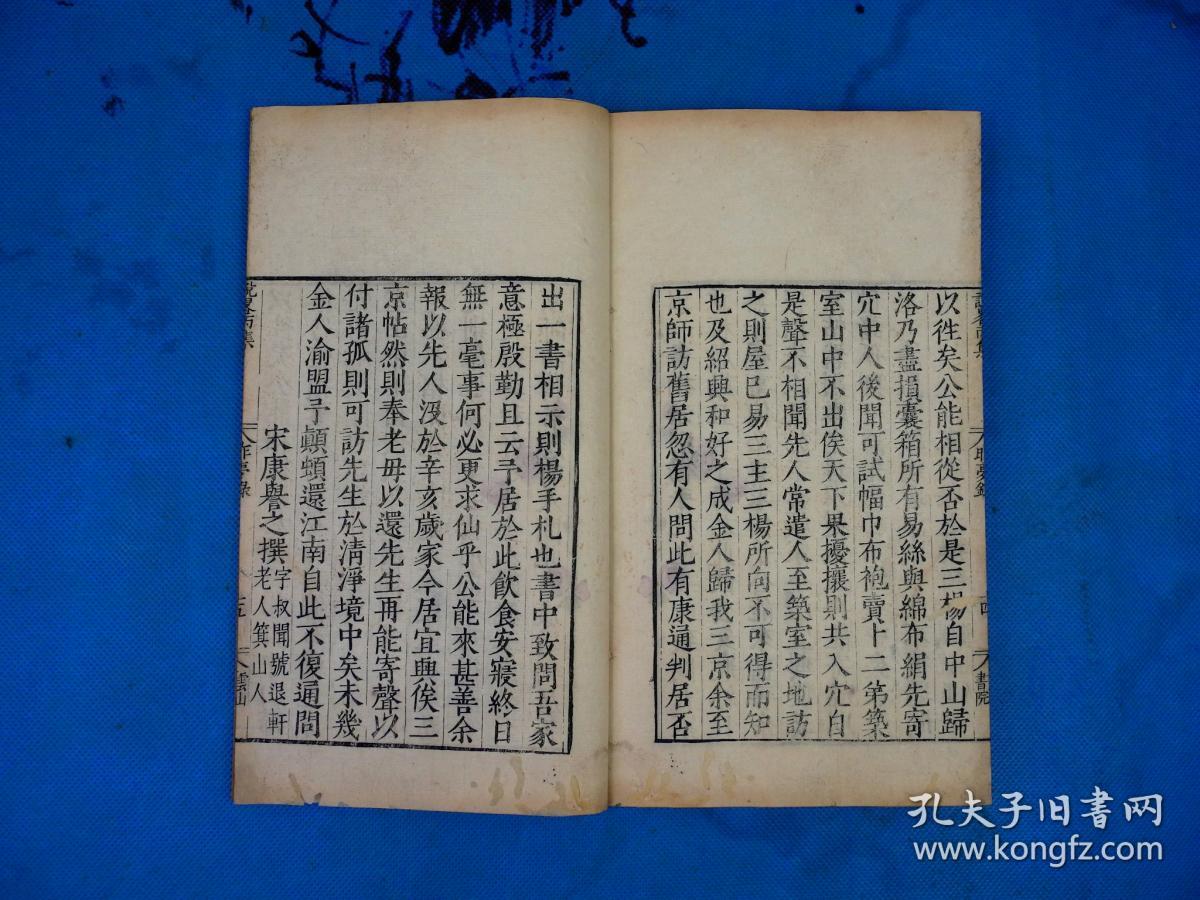 以徃矣公能相從否於是三楊自中山歸
洛乃盡損囊箱所有易絲與綿布絹先寄
穴中人後聞可試幅巾布袍賣卜二弟築
室山中不出俟天下果擾攘則共入穴自
是聲不相聞先人常遣人至築室之地訪
之則屋已易三主三楊所向不可得而知
也及紹興和好之成金人歸我三京余至
京師訪舊居忽有人問此有康通判居否
出一書相示則楊手札也書中致問吾家
意極殷勤且云予居於此飲食安寢終日
無一毫事何必更求仙乎公能來甚善余
報以先人沒於辛亥歲家今居宜興俟三
京帖然則奉老母以還先生再能寄聲以
付諸孤則可訪先生於清淨境中矣未幾
金人渝盟予顛頓還江南自此不復通問
宋康譽之撰 字叔聞號退軒
老人箕山人
昨夢錄
四
書院
五
雲山
孔夫子旧書网
www.kongfz.com